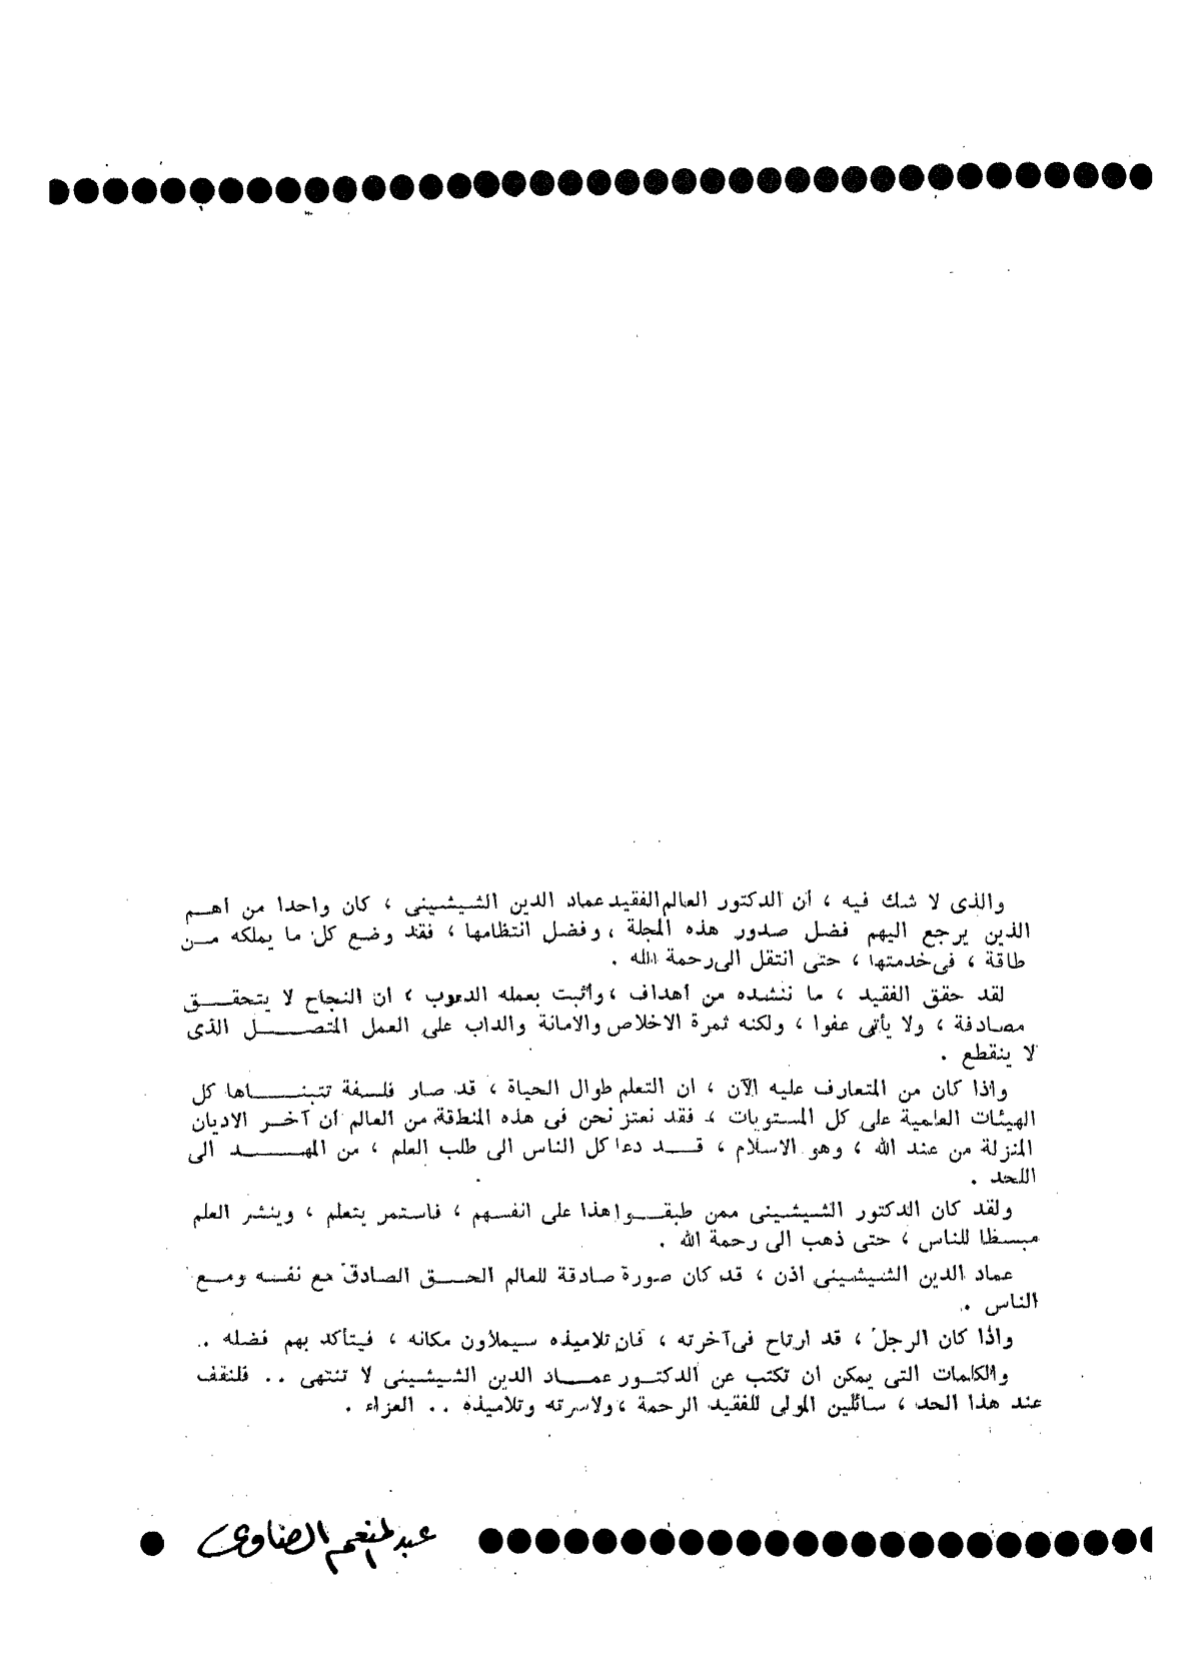 والذى لا شك فيه ، أن الدكتور العالم الفقيد عماد الدين الشيشينى ، كان واحدا من أهـم
الذين يرجع اليهم فضل صدور هذه المجلة ، وفضل انتظامها ، فقد وضع كل ما يملكه مـن
طاقة ، فى خدمتها ، حتى انتقل الى رحمة الله .
لقد حقق الفقيد ، ما ننشده من أهداف ، وأثبت بعمله الدءوب ، ان النجاح لا يتحقـــق
مصادفة ، ولا يأتى عفوا ، ولكنه ثمرة الاخلاص والامانة والداب على العمل المتصــــل الذى
لا ينقطع .
واذا كان من المتعارف عليه الآن ، ان التعلم طوال الحياة ، قد صار فلسفة تتبنــــاها كل
الهيئات العلمية على كل المستويات ، فقد نعتز نحن فى هذه المنطقة من العالم أن آخـر الاديان
المنزلة من عند الله ، وهو الاسلام ، قـــد دعا كل الناس الى طلب العلم ، من المهــــد الى
اللحد .
ولقد كان الدكتور الشيشينى ممن طبقـــوا هذا على انفسهم ، فاستمر يتعلم ، وينشر العلم
مبسطا للناس ، حتى ذهب الى رحمة الله .
عماد الدين الشيشينى اذن ، قد كان صورة صادقة للعالم الحـــق الصادق مع نفسه ومـع
الناس .
واذا كان الرجل ، قد ارتاح فى آخرته ، فان تلاميذه سيملأون مكانه ، فيتأكد بهم فضله ..
والكلمات التى يمكن ان تكتب عن الدكتـور عمـــاد الدين الشيشينى لا تنتهى .. فلنقف
عند هذا الحد ، سائلين المولى للفقيد الرحمة ، ولاسرته وتلاميذه .. العزاء .
عبد المنعم الصاوى